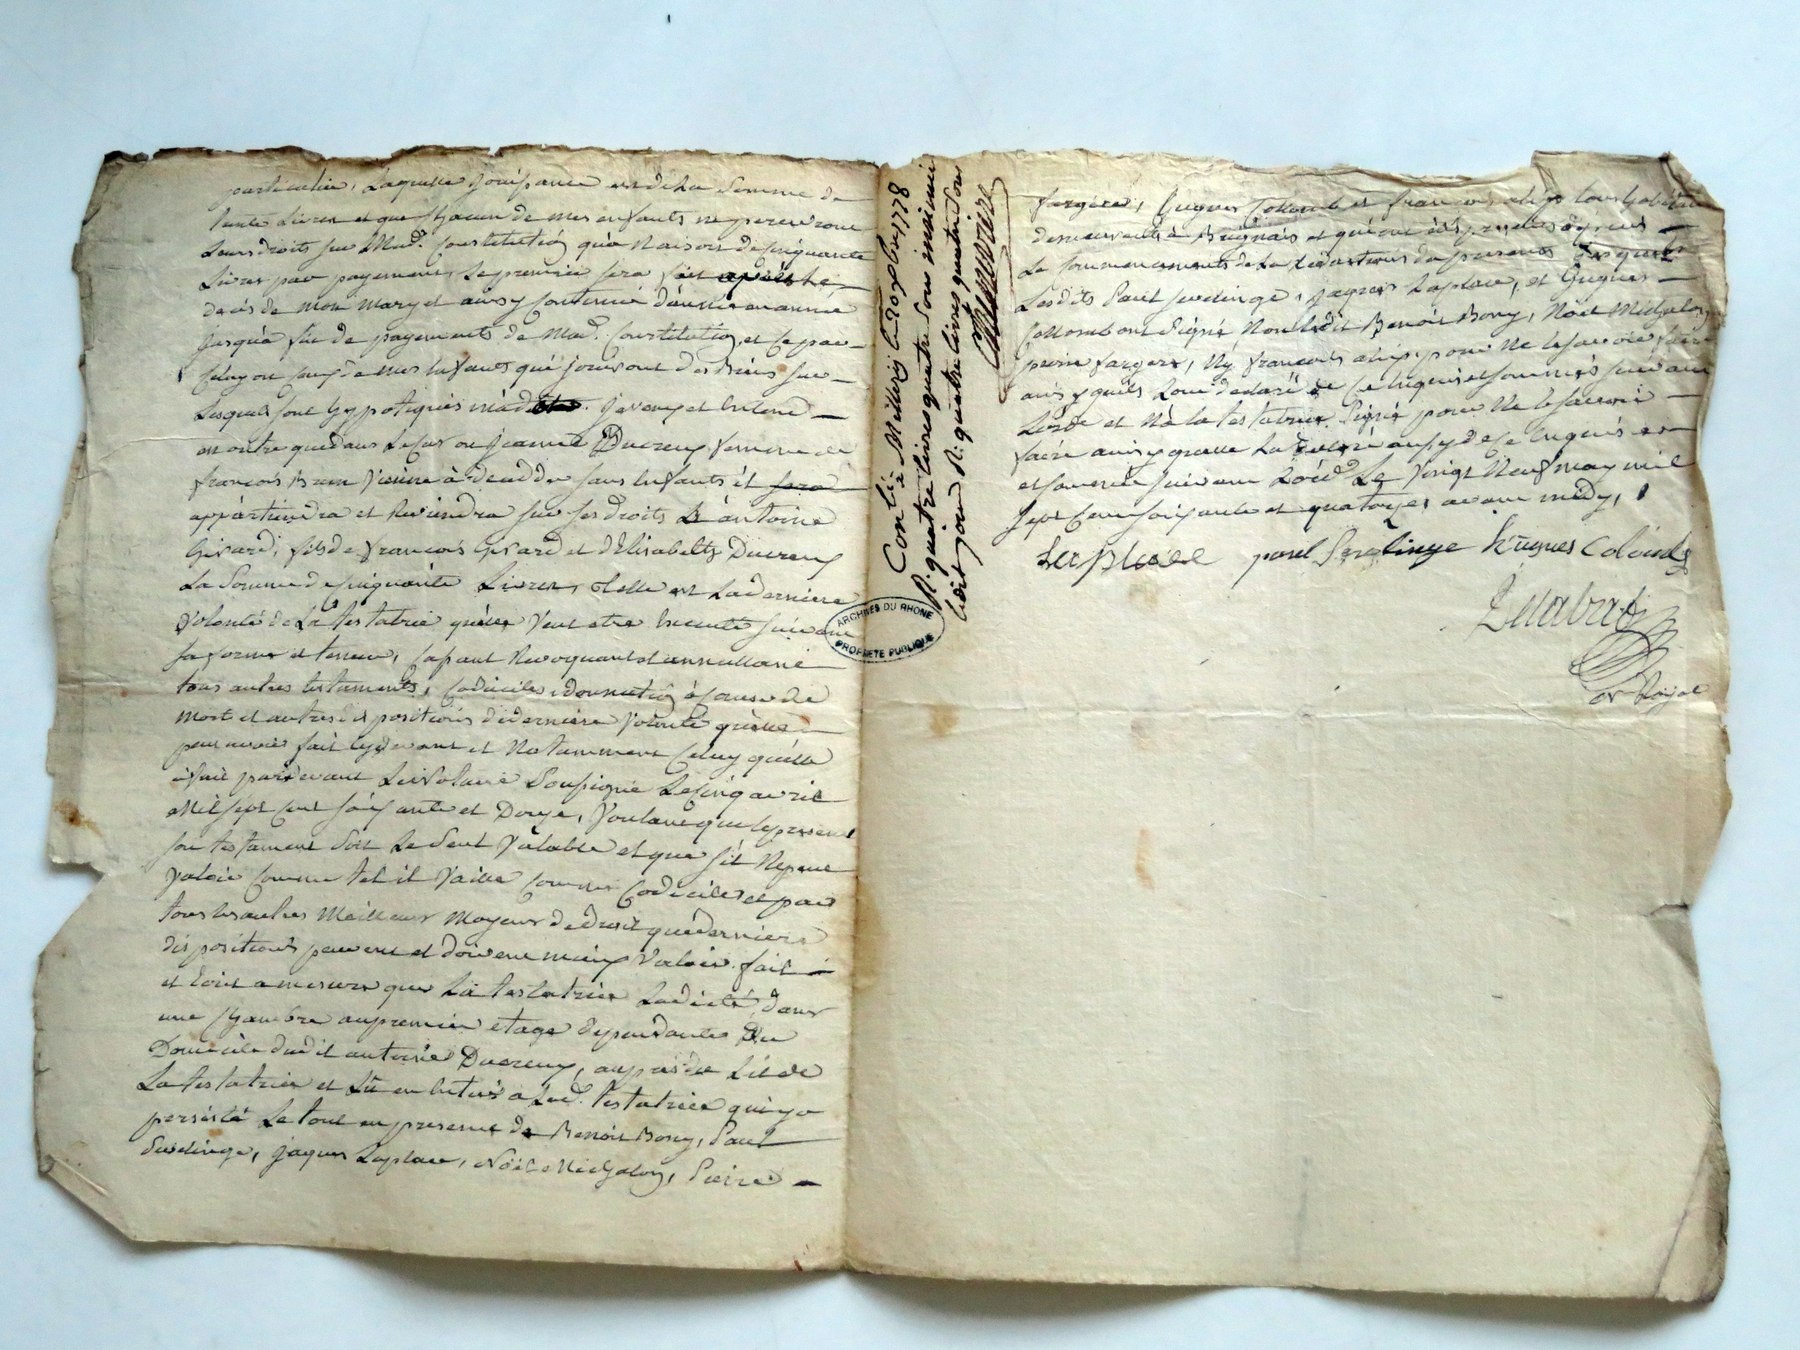 particulier, Laquelle jouissance est de La Somme de
Livres et que Chacun de mes enfants ne percevront
Leurs droits sur Mad. Constitution qu'a Raison de Cinquante
Livres par payement, Le premier sera fait
decés de mon mary et ainsy Continué d'année en année
jusqu'a fin de payements de Mad. Constitution, et Ce par
Celuy ou Ceux de mes Enfants qui jouiront des Biens sur
Lesquels sont hypotequés Je veux et Entend
en outre que dans Le Cas ou jeanne Ducreux femme de
francois Brun Vienne à deceder sans Enfants il
appartiendra et Reviendra sur ses droits à antoine
Girard, fils de francois Girard et d'Elisabeth Ducreux
La Somme de Cinquante Livres, telle est La derniere
Volonté de La testatrice qu'elle Veut etre Executé suivant
sa forme et teneur, Cassant Revoquant et annullant
tous autres testaments, Codiciles, donnation à Cause de
mort et autres dispositions de derniere Volonté qu'elle
peut avoir fait cy devant et Notamment Celuy qu'elle
a fait pardevant Le Notaire Soussigné Le Cinq avril
Mil sept Cent soixante et Douze, Voulant que Le present
son testament Soit Le Seul Valable et que s'il Ne peut
Valoir Comme tel il Vaille Comme Codicile et par
tous Les autres Meilleurs Moyens de droit que dernieres
dispositions peuvent et doivent mieux Valoir. fait
et Ecrit a mesure que La testatrice La dicté, dans
une Chambre au premier etage dependante Du
Domicile dudit antoine Ducreux, aupres du Lit de
La testatrice et Lû en Entier a Lad. testatrice qui y a
persisté Le tout en presence de Benoit Bony, Paul
Sardinge, jaques Laplace, Noël Michalon, Pierre
Conllé à Millery Le 30 xbre 1778
R. quatre Livres quatre Sous insinué
Ledit jour R. quatre Livres quatre Sous
fargere, Hugues Collomb et francois tous habitants
demeurants à Brignais et qui ont été presents
Le Commencement de La redaction du present
Lesdits Paul Sardinge, Jaques Laplace, et Hugues
Collomb ont signé, Non Ledit Benoit Bony, Noël Michalon,
pierre fargere, Ny francois pour Ne Le sçavoir faire
ainsy qu'ils L'ont declaré de Ce Enquis et sommés suivant
L'orde et Na La testatrice Signé pour Ne Le sçavoir
faire ainsy qu'elle La declaré aussy de Ce Enquis et
et sommée suivant L'ord. Le Vingt Neuf may mil
sept Cent soixante et quatorze, avant midy,
Laplace paul Sardinge hugues Colomb
re Royal
ARCHIVES DU RHONE
PROPRIETE PUBLIQUE